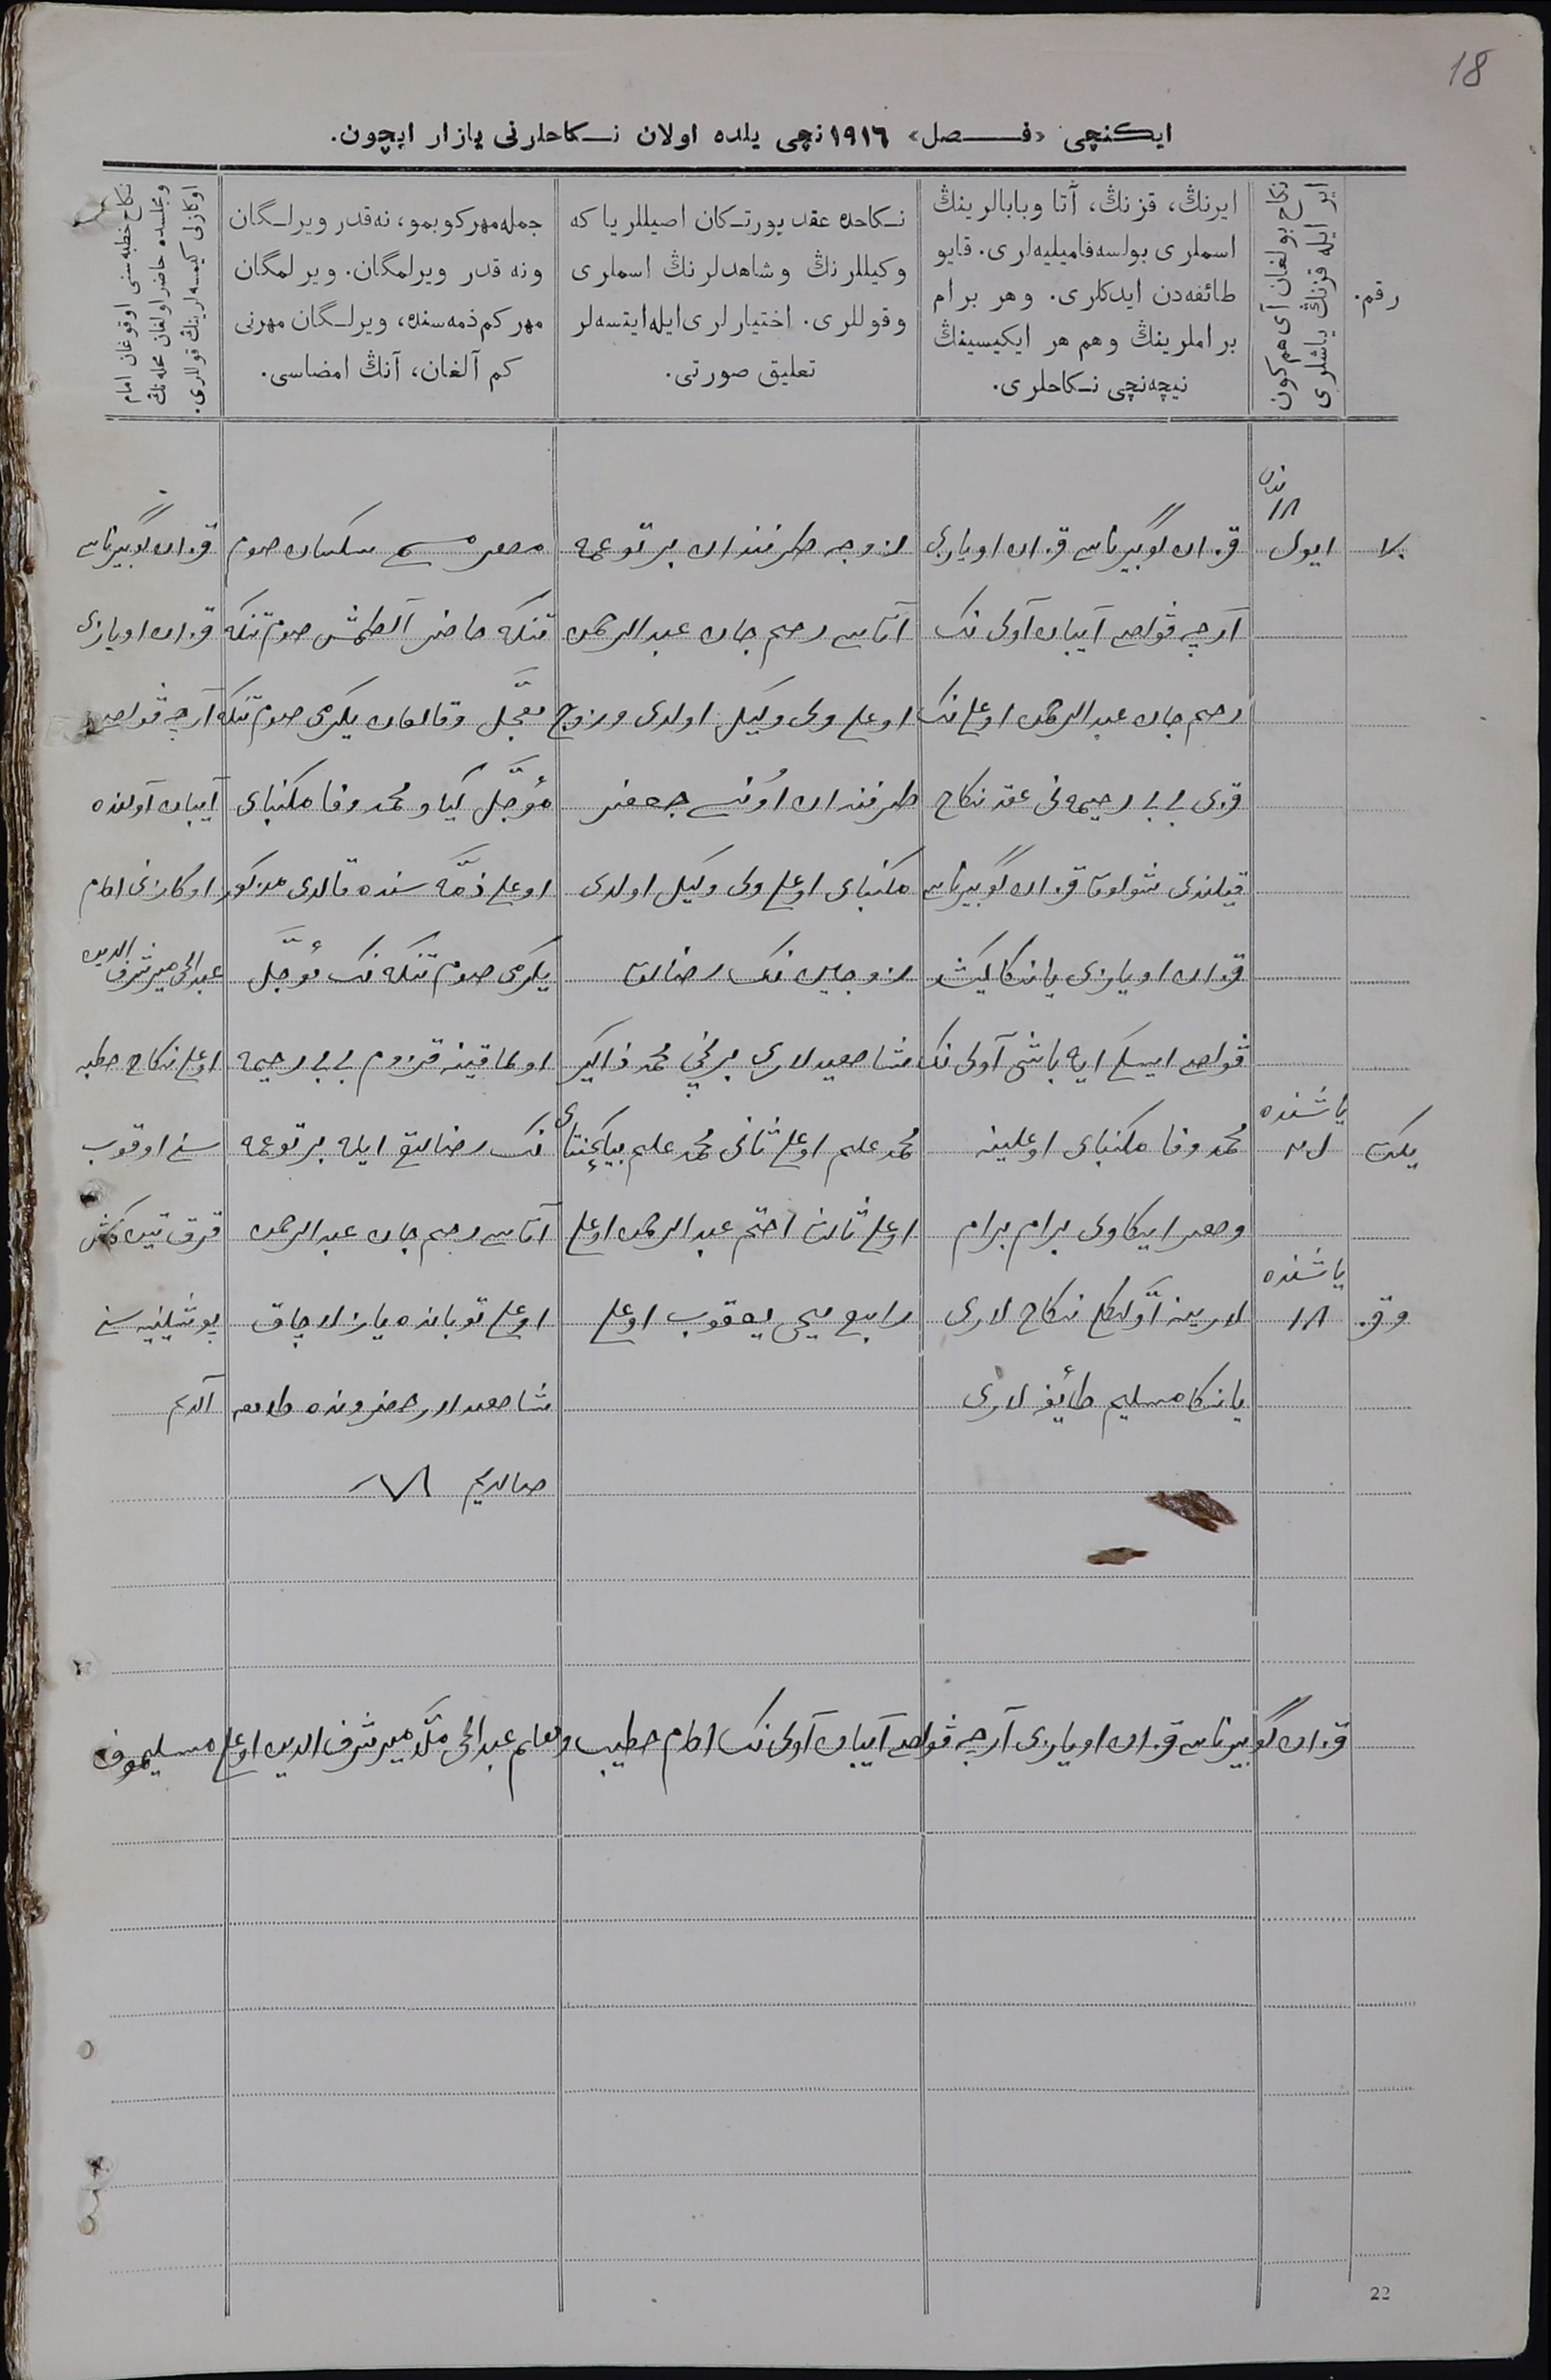 18
ایكنچی «فصل» ١٩١٦نچی یلده اولان نكاحلرنی یازار ایچون.
رقم.
نكاح بولغان آی هم كون
ایر ایله قزنڭ یاشلری
ایرنڭ، قزنڭ، آتا وبابالرینڭ
اسملری بولسه فامیلیه‌لری. قایو
طائفه‌دن ایدكلری. وهر برام
براملرینڭ وهم هر ایكیسینڭ
نیچه‌نچی نكاحلری.
نكاحده عقد یورتكان اصیللر یا كه
وكیللرنڭ وشاهدلرنڭ اسملری
وقوللری. اختیارلری ایله ایتسه‌لر
تعلیق صورتی.
جمله مهر كوبمو، نه‌قدر ویرلگان
ونه قدر ویرلمگان. ویرلمگان
مهر كم ذمه‌سنده، ویرلگان مهرنی
كم آلغان، آنڭ امضاسی.
نكاح خطبه‌سنی اوقوغان امام
ومجلسده حاضر اولغان محله‌نڭ
اوكازلی كیمسه‌لرینڭ قوللری.
ایول
١٨
قزان گوبیرناسی قزان اویازی
آرچه ڤولصی آیبان آولی نك
رحیم جان عبدالرحمن اوغلی نك
قزی بی بی رحیمه نی عقد نكاح
قیلندی شولوق قزان گوبیرناسی
قزان اویازی
ڤولصی ایسكی ایه باشی آولی نك
محمد وفا مكنبای اوغلینه
وهم ایكاوی برام برام
لارینه اوّلگی نكاح لاری
یانكا مسلیم طائفه لاری
زوجه طرفندان بر توغمه
آتاسی رحیم جان عبدالرحمن
اوغلی ولی وكیل اولدی وزوج
طرفندان اونسی جعفر
مكنبای اوغلی ولی وكیل اولدی
زوجین نك رضالق
شاهیدلاری برنچی محمد ذاكیر
محمد علیم اوغلی ثانی محمد علیم
اوغلی ثالث عبدالرحمن اوغلی
رابع یحیی یعقوب اوغلی
مهر سكسان صوم
تنكه حاضر آلطمش صوم تنكه
معجّل وقالغان یكرمی صوم تنكه
مؤجّل كیاو محمد وفا مكنبای
اوغلی ذمّه سنده قالدی مذكور
یكرمی صوم تنكه نك مؤجّل
اولماقینه قزم بی بی رحیمه
نك رضالیق ایله بر توغمه
آتاسی رحیم جان عبدالرحمن
اوغلی توبانده یازلاچاق
شاهیدلار حضرونده
قزان گوبیرناسی
قزان اویازی
آرچه ڤولصی
آیبان آولنده
اوكازنی امام
عبدالحی میر شرف الدین
اوغلی نكاح خطبه
سنی اوقوب
قرق تین
پوشلینه سنی
آلدم
یاشنده
یكت
یاشنده
١٨
وقز
قزان گوبیرناسی قزان اویازی آرچه ڤولصی آیبان آولی نك امام خطیب ومعلم عبدالحی ملا میر شرف الدین اوغلی مسلیموف
22